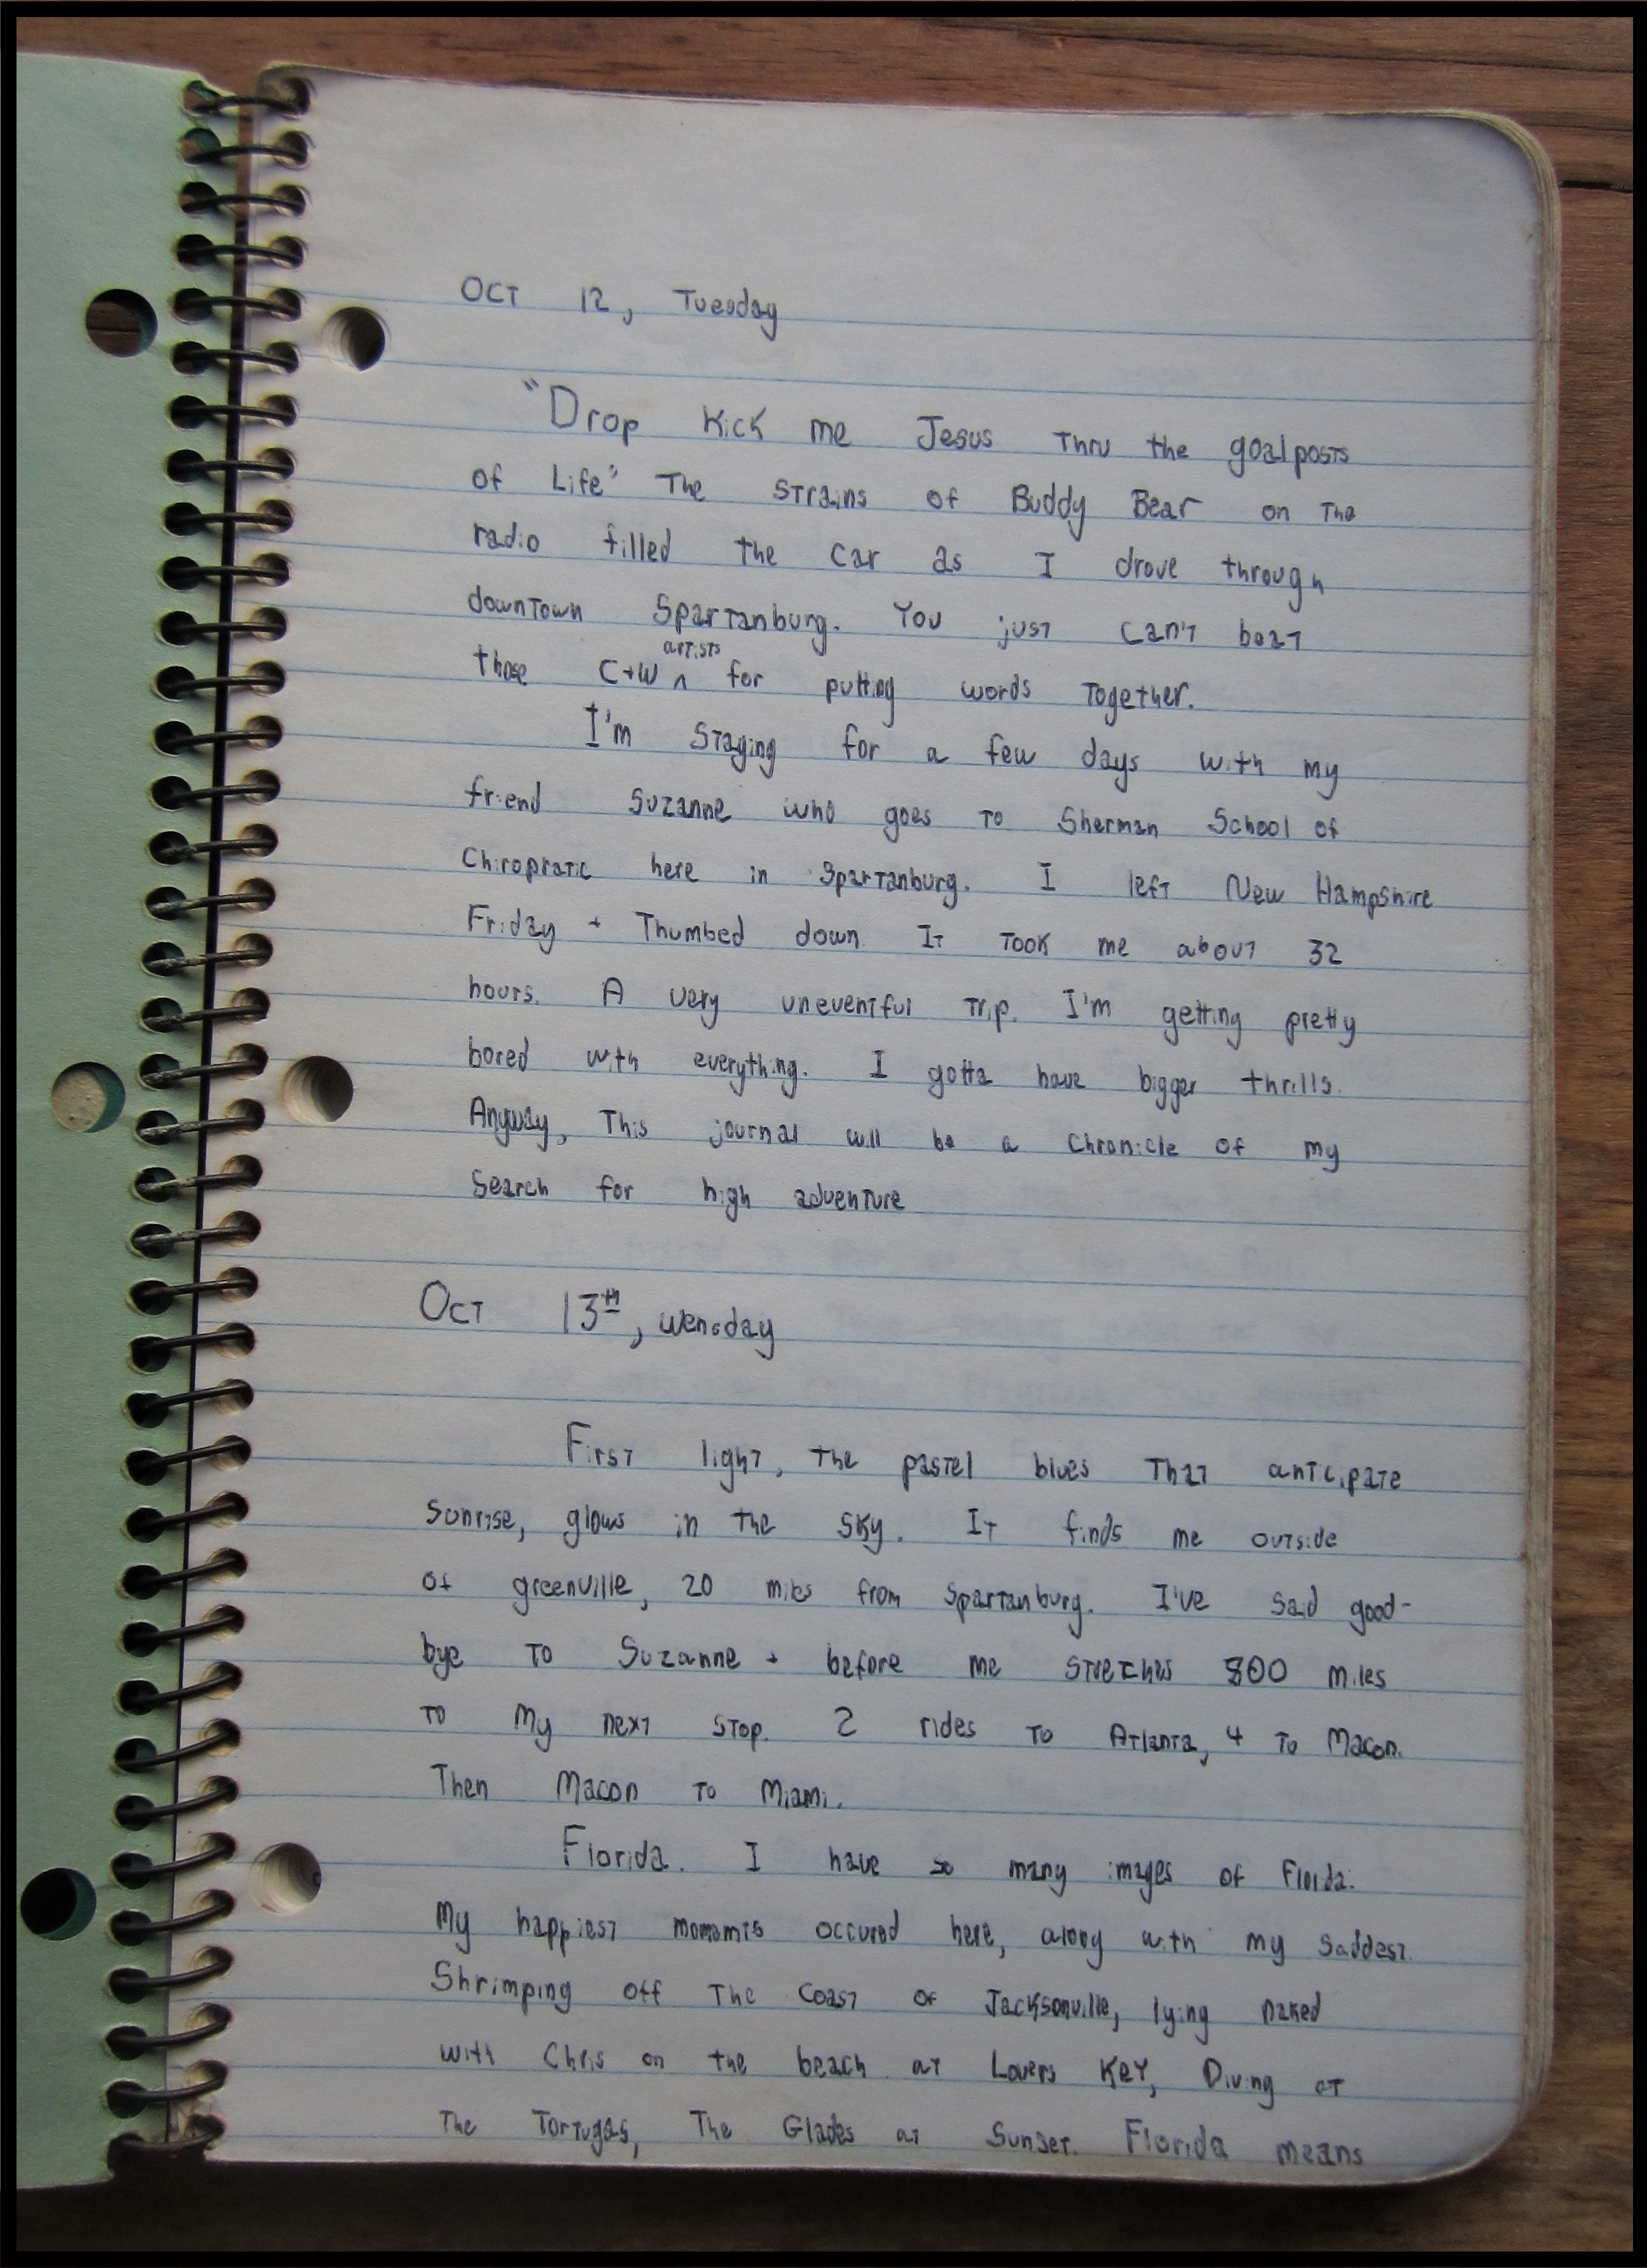 OCT 12, Tuesday
"Drop Kick me Jesus Thru the goalposts
of Life" The strains of Buddy Bear on The
radio filled the car as I drove through
downtown Spartanburg. You just can't beat
those C+W ^ artists for putting words together.
I'm Staying for a few days with my
friend Suzanne who goes to Sherman School of
Chiropratic here in Spartanburg. I left New Hampshire
Friday + Thumbed down. It took me about 32
hours. A very uneventful trip. I'm getting pretty
bored with everything. I gotta have bigger thrills.
Anyway, This journal will be a chronicle of my
Search for high adventure
Oct 13th, Wensday
First light, the pastel blues That anticipate
Sunrise, glows in the sky. It finds me outside
of greenville, 20 miles from Spartanburg. I've said good-
bye to Suzanne + before me stretches 800 miles
to my next stop. 2 rides to Atlanta, 4 to Macon.
Then Macon to Miami.
Florida. I have so many images of Florida.
My happiest moments occured here, along with my saddest.
Shrimping off The Coast of Jacksonville, lying naked
with Chris on the beach at Lovers Key, Diving at
The Tortugas, The Glades at Sunset. Florida means